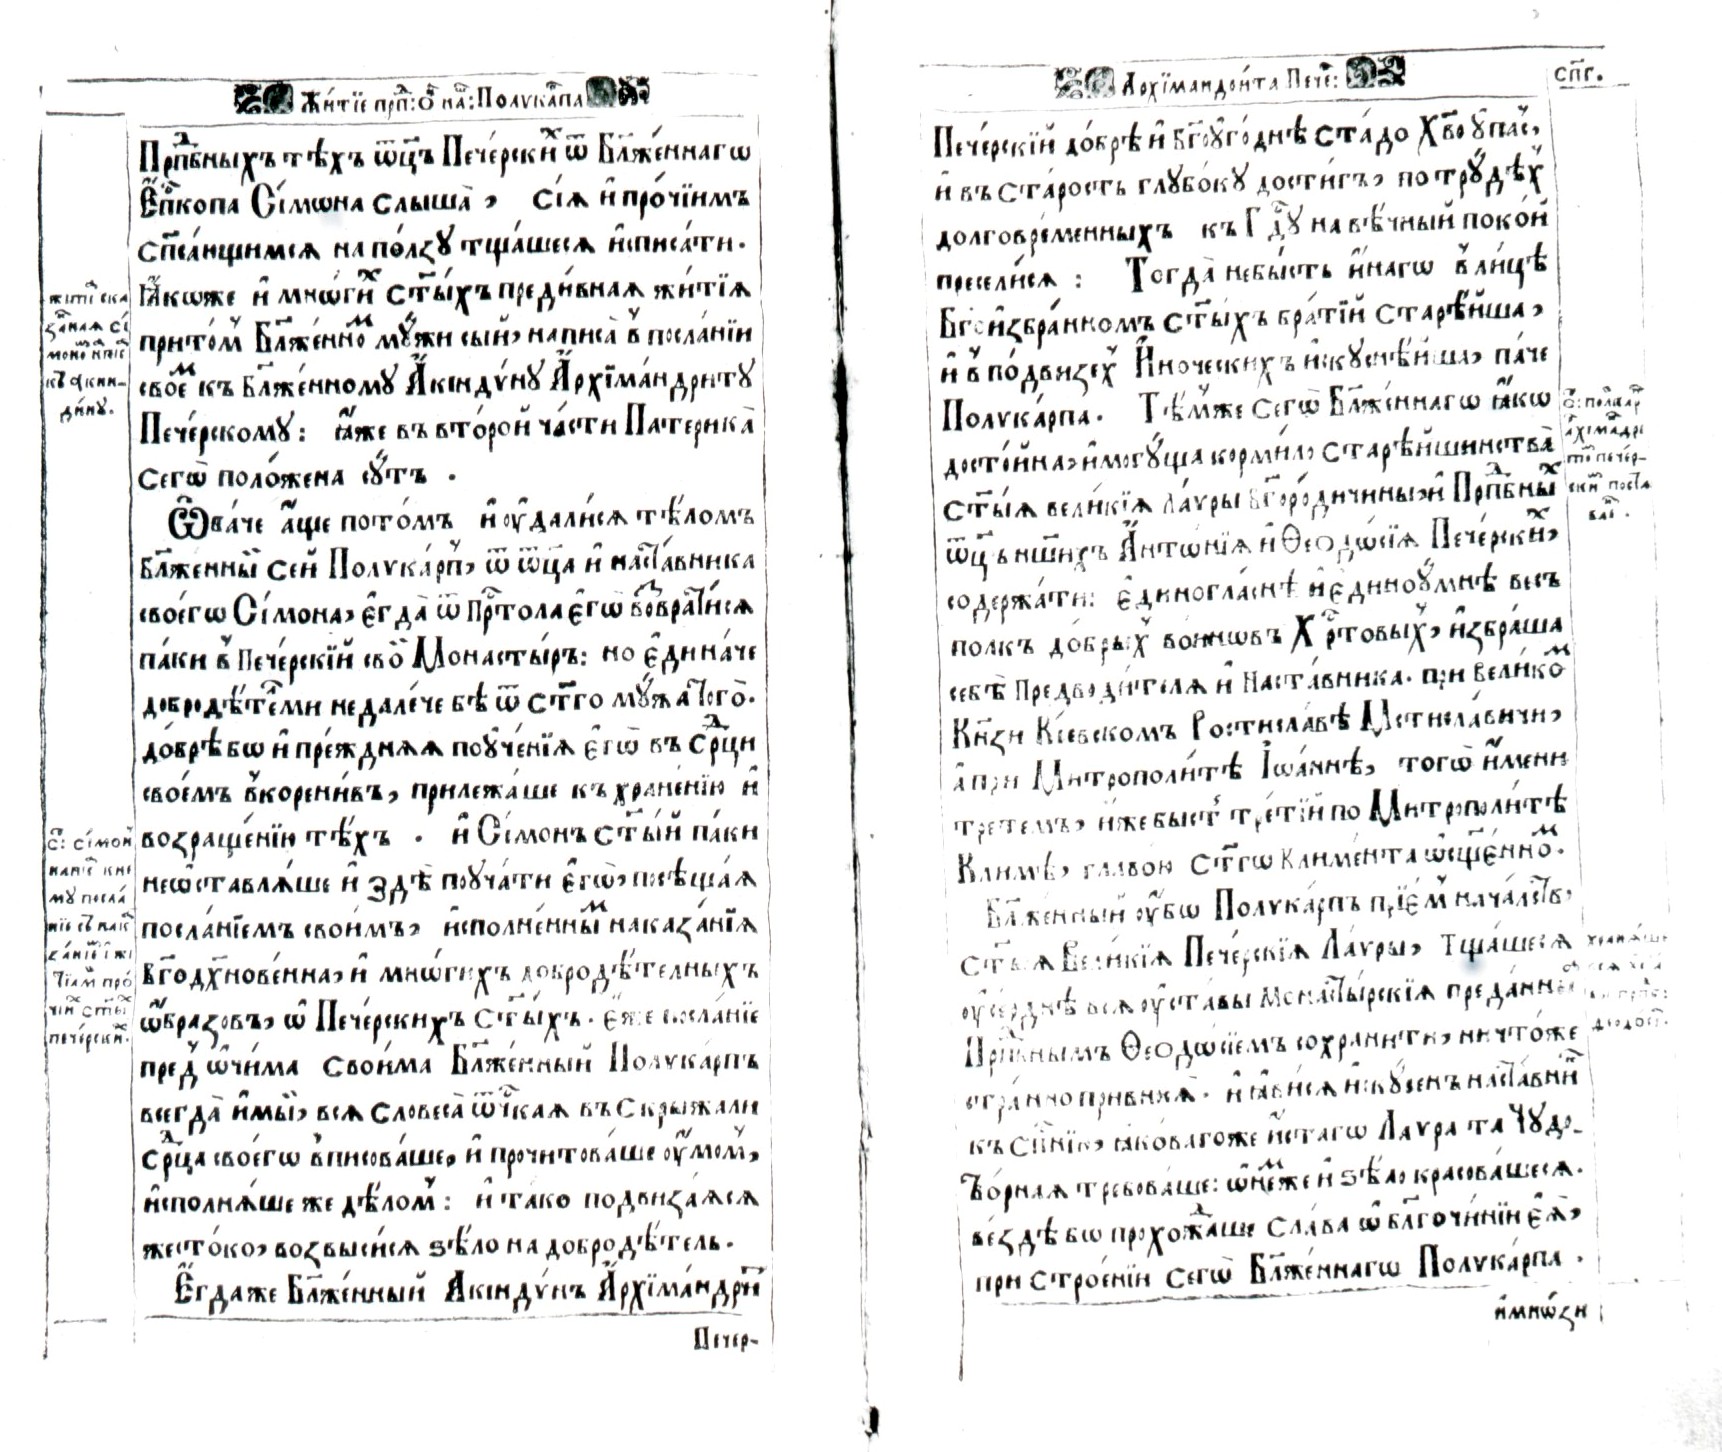 Житїе прпⷣ: ѻ҃ на҃: Полѵка́рпа
Прпⷣбныхъ тѣ́хъ ѿц҃ъ Пече́рскиⷯ ѿ Бл҃же́ннагѡ
Е҆пⷭ҇копа Сі́мѡна слыша̀, сїѧ и҆ про́чїимъ
сп҃са́ющимсѧ на по́лзꙋ тща́шесѧ и҆списа́ти.
Ꙗ҆́коже и҆ мнѡ́гиⷯ ст҃ы́хъ преди́внаѧ житїѧ̀
прито́мъ Бл҃же́нноⷨ мꙋ́жи сый, написа̀ в̾ посла́нїи
своеⷨ къ бл҃же́нному А҆кінди́нꙋ А҆рхїма́ндритꙋ
Пече́рскомꙋ: ꙗ҆́же въ второ́й ча́сти Патерика̀
сегѡ̀ поло́жена сꙋ́ть.
Ѻ҆ба́че а҆́ще пото́мъ и҆ ᲂу҆дали́сѧ тѣ́ломъ
бл҃же́нный сей Полѵка́рпъ, ѿ ѿц҃а и҆ наста́вника
своегѡ Сі́мона, е҆гда̀ ѿ Прⷭ҇тола е҆гѡ̀ во́зврати́сѧ
па́ки в̾ Пече́рскїй сво́й Монасты́рь: но е҆дина́че
добродѣ́телми недале́че бѣ ѿ ст҃го мꙋ́жа тогѡ̀.
до́брѣ бо и҆ пре́жднѧѧ поꙋче́нїѧ е҆гѡ̀ въ срⷣци
свое́мъ в̾корени́въ, прилежа́ше къ хране́нїю и҆
возраще́нїю тѣ́хъ. и҆ Сі́монъ ст҃ы́й па́ки
неѡ҆ставлѧ́ше и҆ здѣ̀ поꙋча́ти е҆гѡ̀, посѣща́ѧ
посла́нїемъ свои́мъ, и҆спо́лненныⷨ наказа́нїѧ
бг҃одх҃нове́нна, и҆ мнѡ́гихъ добродѣ́телныхъ
ѡ҆́бразовъ, ѡ҆ Пече́рскихъ ст҃ы́хъ. е҆́же посла́нїе
преⷣ ѡ҆чи́ма свои́ма Бл҃же́нный Полѵка́рпъ
всегда̀ и҆мы́й, всѧ словеса̀ ѿч҃каѧ въ скрыжали
срⷣца своегѡ в̾писова́ше, и҆ прочитова́ше ᲂу҆мо́мъ,
и҆сполнѧ́ше же дѣ́ломъ: и҆ та́ко подвиза́ѧсѧ
жесто́ко, возвыси́сѧ ѕѣ́ло на добродѣ́тель.
Е҆гда́же Бл҃же́нный А҆кінди́нъ А҆рхїма́ндриⷮ
Печер-
житїѧ ска
за́ннаѧ Сі
моно
къ акин-
ди́нꙋ.
с҃: Сі́моⷩ
написа
мꙋ посла́
нїе
чїиⷯ ст҃ыⷯ
пече́рскиⷯ.
Архїмандри́та Пече́р:
сп҃г.
Пече́рскїй до́брѣ и҆ бг҃оꙋго́днѣ ста́до Хв҃о ᲂу҆па́съ,
и҆ въ ста́рость глꙋбо́кꙋ дости́гъ, по трꙋдѣ́хъ
долговре́менныхъ къ Гдⷭ҇ꙋ на вѣ́чный поко́й
пресели́сѧ: Тогда̀ небы́сть и҆́нагѡ в̾ ли́цѣ
Бг҃оизбра́нномъ ст҃ы́хъ бра́тїй старѣ́йша,
и҆ в̾ по́двизѣхъ И҆́ноческихъ и҆скꙋснѣ́йша, па́че
Полѵка́рпа. Тѣ́мже сегѡ̀ Бл҃же́ннагѡ ꙗ҆́кѡ
досто́йна, и҆ могꙋ́ща корми́ло старѣ́йшинства
ст҃ы́ѧ вели́кїѧ ла́ѵры Бг҃оро́дичины, и҆ Прпⷣбныⷯ
ѿц҃ъ нш҃ихъ А҆нтѡ́нїѧ и҆ Ѳеодѡ́сїѧ Пече́рскиⷯ,
содержа́ти: е҆диногла́снѣ и҆ є҆диноꙋ́мнѣ весь
полкъ до́брыхъ во́иновъ Хрⷭ҇товыхъ, и҆збра́ша
себѣ̀ Предводи́телѧ и҆ Наста́вника. при вели́коⷨ
Кн҃зи Кі́евскомъ Ростисла́вѣ Мстисла́вичи,
а҆ при Митрополи́тѣ І҆ѡа́ннѣ, тогѡ̀ и҆́мени
тре́темъ, и҆́же бысть тре́тїй по Митрополи́тѣ
Кли́мѣ, главо́ю ст҃гѡ Кли́мента ѡ҆сщ҃е́нноⷨ.
Бл҃же́нный ᲂу҆́бѡ Полѵка́рпъ прїе́мъ нача́лство,
ст҃ы́ѧ Вели́кїѧ Пече́рскїѧ Ла́ѵры, тща́шесѧ
ᲂу҆се́рднѣ всѧ ᲂу҆ста́вы монасты́рскїѧ преда́нныѧ
Прпⷣбнымъ Ѳеодѡ́сїемъ сохрани́ти, ничто́же
стра́нно привнидѧ̀. и҆ ꙗ҆ви́сѧ и҆скꙋ́сенъ наста́вниⷦ
къ сп҃сенїю, ꙗ҆ковагоже и҆́стагѡ Ла́ѵра та Чꙋдо-
тво́рнаѧ тре́боваше: ѡ҆не́мже и҆ ѕѣ́ло красова́шесѧ.
ве́здѣ бо прохожда́ше сла́ва ѡ҆ бл҃гочи́нїи е҆ѧ̀,
при строе́нїи сегѡ̀ Бл҃же́ннагѡ Полѵка́рпа.
и҆мнѡ́зи
с҃: полика́р
а҆рхїма́ндри
томъ пече́р-
скиⷨ поста